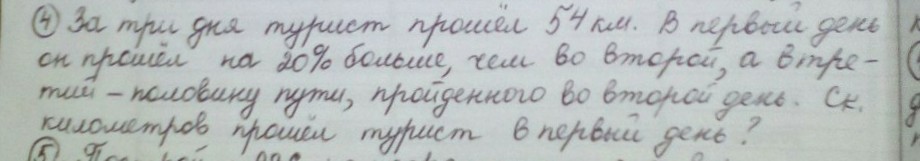 ④ За три дня турист прошёл 54 км. В первый день
он прошёл на 20% больше, чем во второй, а в тре-
тий - половину пути, пройденного во второй день. Ск.
километров прошёл турист в первый день?
⑤